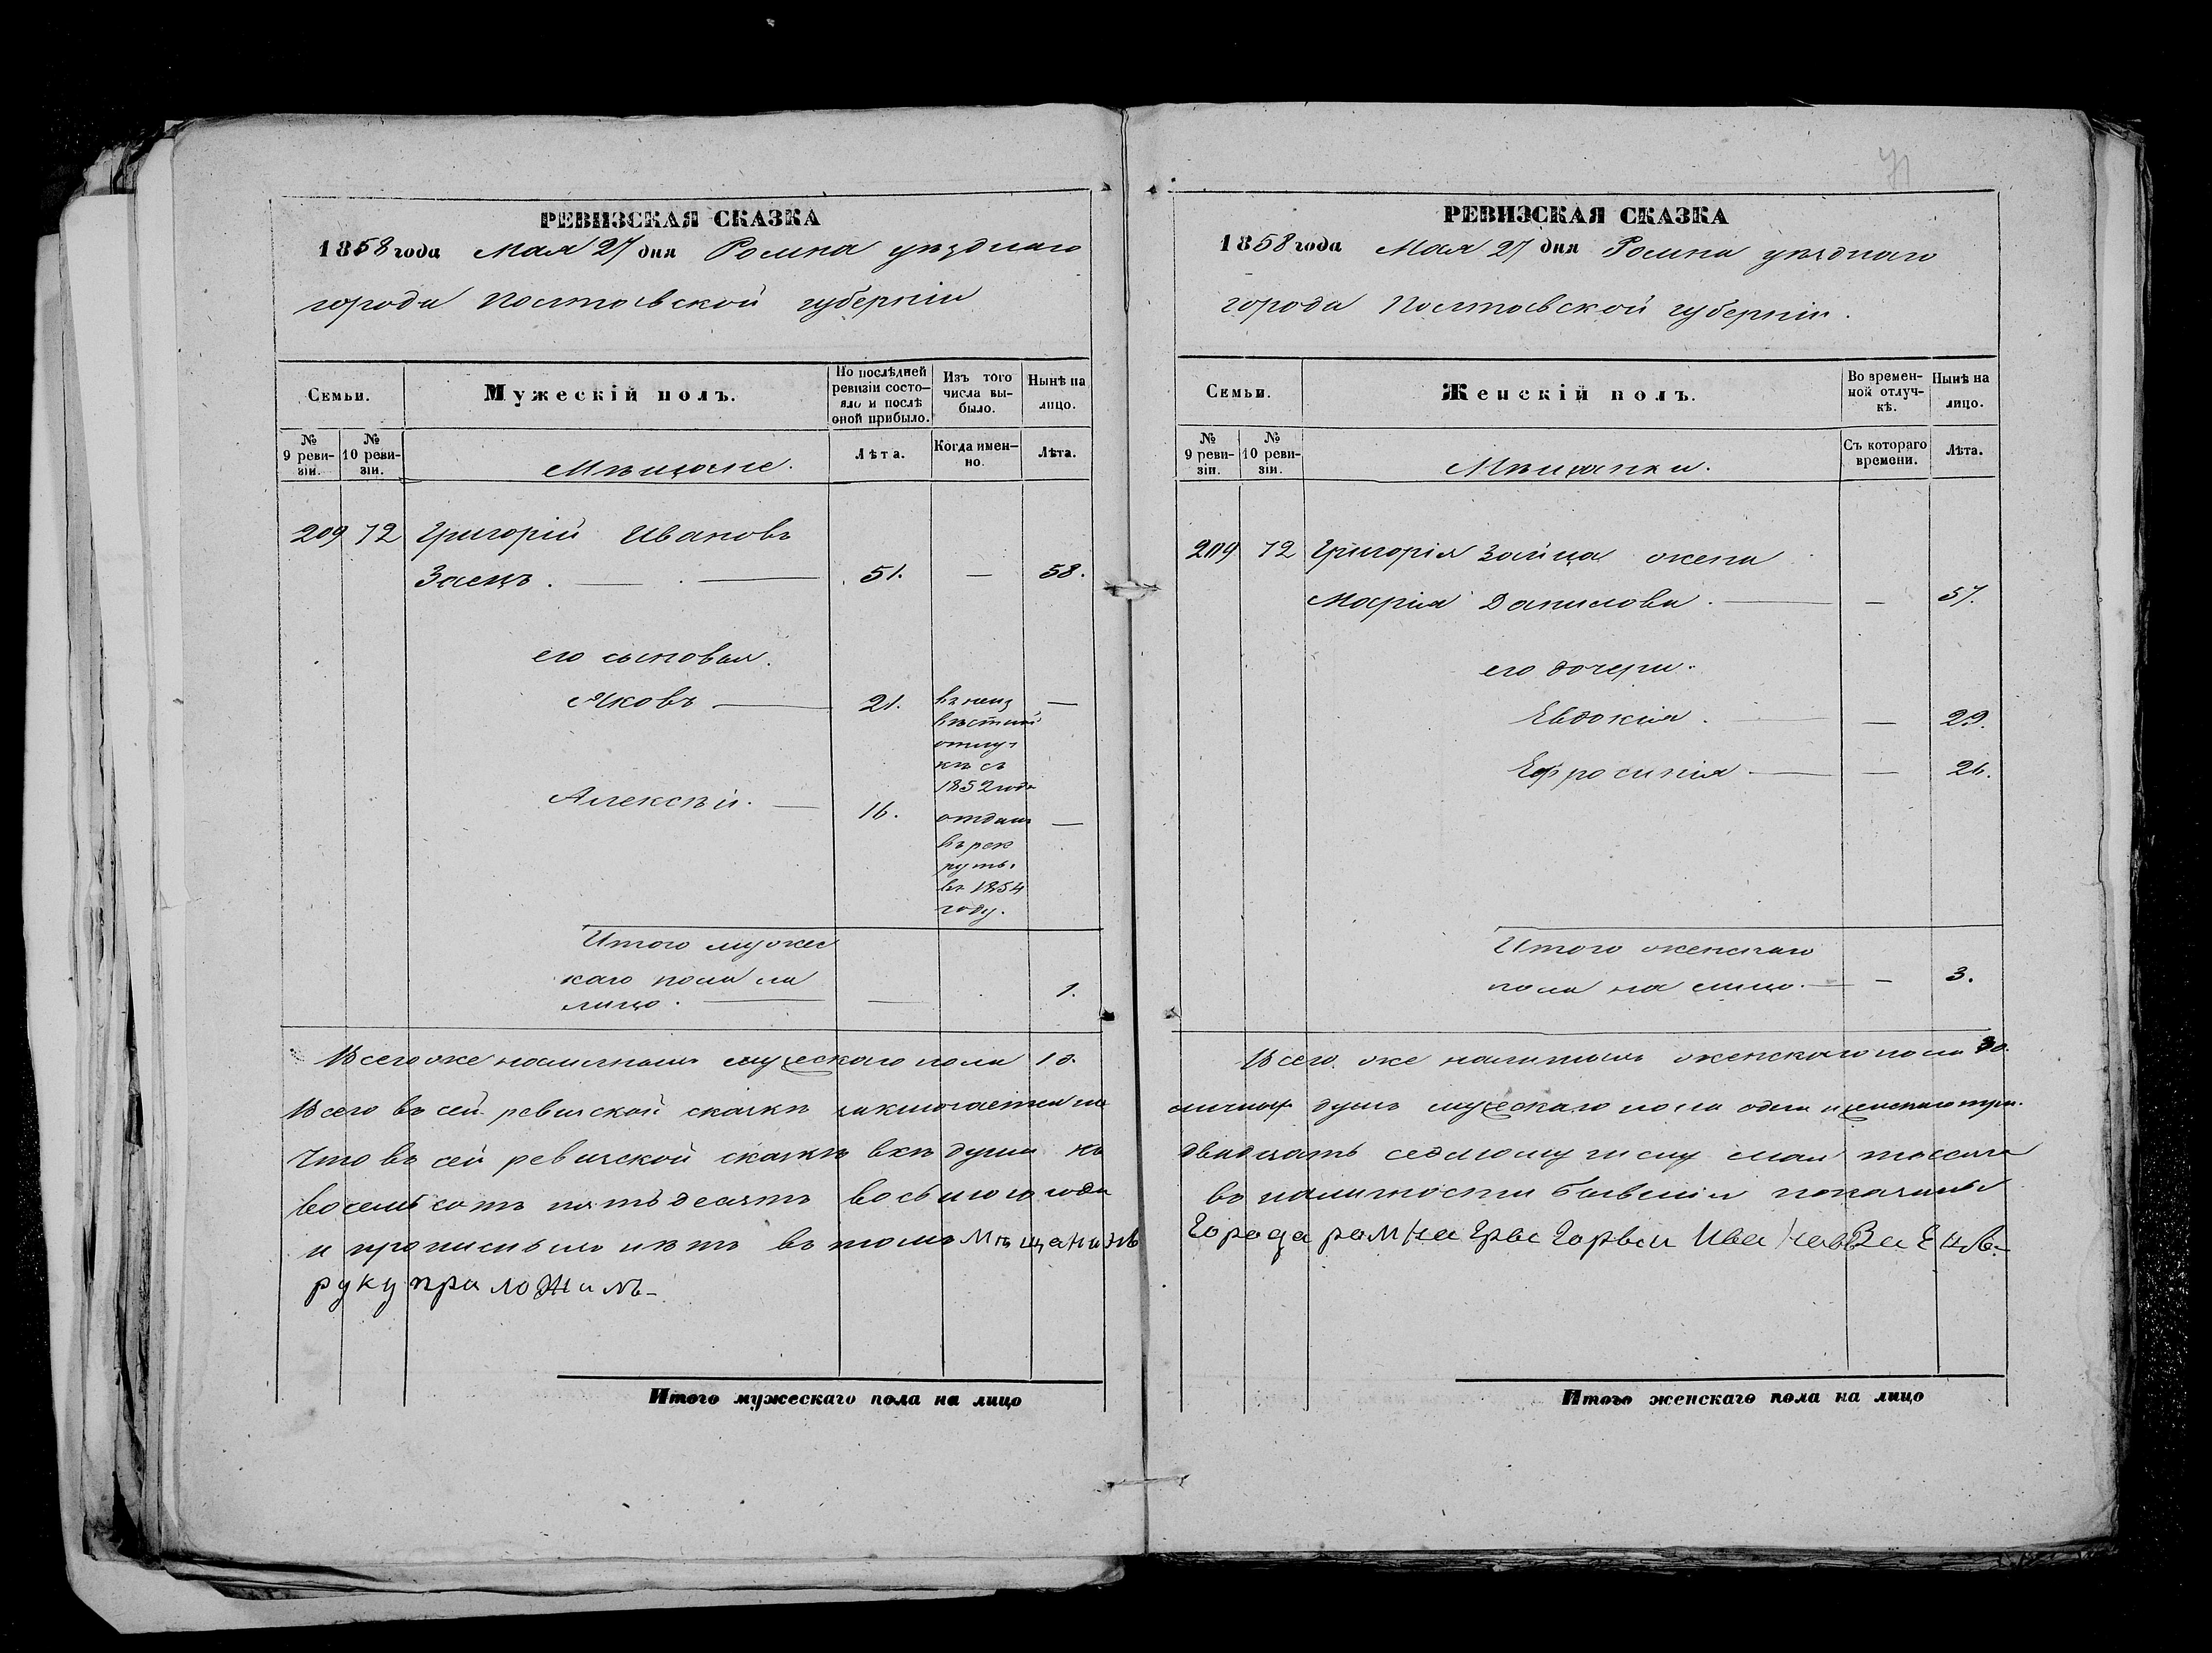 71
РЕВИЗСКАЯ СКАЗКА
1858 года Мая 27 дня Ромна уѣзднаго
города Полтавской губерніи
Семьи.
Мужескій полъ.
По послѣдней ревизіи состояло и послѣ оной прибыло.
Изъ того числа выбыло.
Нынѣ на лицо.
№ 9 ревизіи.
№ 10 ревизіи.
Мѣщане.
Лѣта.
Когда именно.
Лѣта.
209 72 Григорій Ивановъ
Заецъ. — 51. — 58.
его сыновья.
Яковъ — 21. въ неиз —
вѣстной
отлуч
кѣ съ
1852 года
Алексѣй. — 16. отданъ —
въ рек
руты
въ 1854
году.
Итого мужес
каго пола на
лицо. — — 1.
Всего же наличныхъ мужескаго пола 10.
Всего въ сей ревизской сказкѣ заключается на
Что въ сей ревизской сказкѣ всѣ души къ
восемь сотъ пятьдесятъ восьмого года
и прописныхъ нѣтъ въ томъ Мѣщанинъ
руку приложилъ
Итого мужескаго пола на лицо
РЕВИЗСКАЯ СКАЗКА
1858 года Мая 27 дня Ромна уѣзднаго
города Полтавской губерніи.
Семьи.
Женскій полъ.
Во временной отлучкѣ.
Нынѣ на лицо.
№ 9 ревизіи.
№ 10 ревизіи.
Мѣщанки.
Съ котораго времени.
Лѣта.
209 72 Григорія Зайца жена
Марія Данилова. — — 57.
его дочери.
Евдокія. — — 29.
Ефросинія. — — 26.
Итого женскаго
пола на лицо. — — 3.
Всего же наличныхъ женскаго пола 30.
личныхъ душъ мужескаго пола одна и женскаго три.
двадцать седьмому числу мая тысяча
въ наличности бывшія показаны
Города рамна Грыгорый Иванавъ Заецъ
Итого женскаго пола на лицо